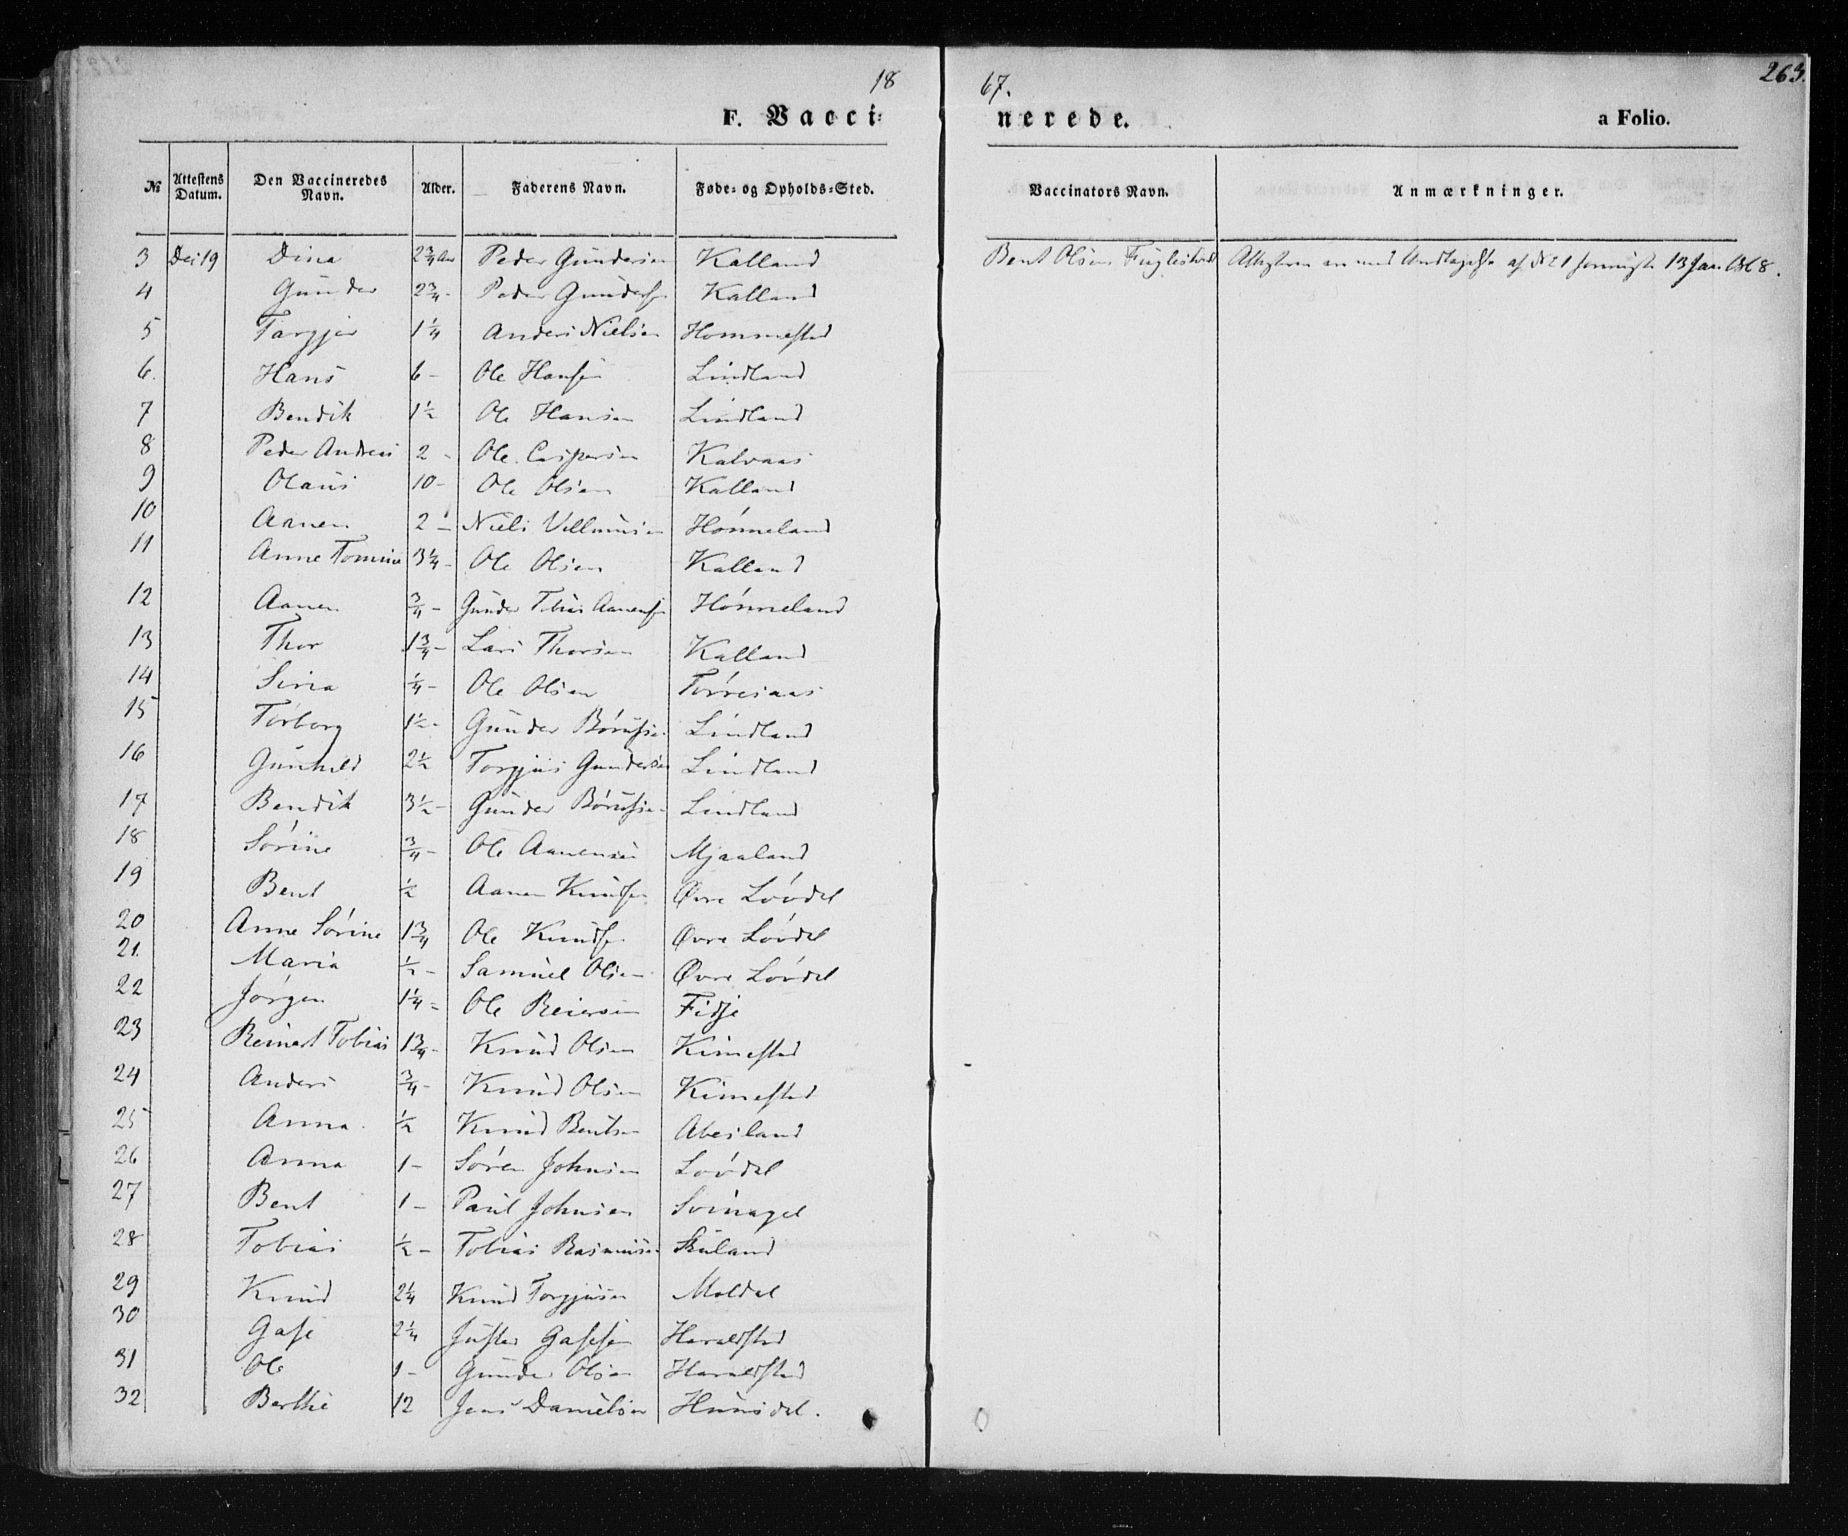 18 67. 263.
F. Vacci= nerede. a Folio.
№ Attestens Datum. Den Vaccineredes Navn. Alder. Faderens Navn. Føde= og Opholds=Sted. Vaccinators Navn. Anmærkninger.
3 Dec 19 Dina 2¾ Aar Peder Gundersen Kalland Bent Olsen Fuglestvedt 13 Jan 1868.
4 Gunder 2¾ - Peder Gundersen Kalland
5 Targjer 1¼ Anders Nielsen Hommestad
6. Hans 6 - Ole Hansen Lindland
7 Bendik 1½ Ole Hansen Lindland
8 Peder Andreas 2 - Ole Caspersen Kalvaas
9 Olaus 10 - Ole Olsen Kalland
10 Aanen 2 Niels Villumsen Hønneland
11 Anne Tomine 3¼ - Ole Olsen Kalland
12 Aanen ¾ - Gunder Tobias Aanensen Hønneland
13 Thor 1¾ - Lars Thorsen Kalland
14 Siria ¼ - Ole Olsen Tørresaas
15 Torborg 1½ - Gunder Børufsen Lindland
16 Gunhild 2½ Torgjus Gundersen Lindland
17 Bendik 3½ - Gunder Børufsen Lindland
18 Sørine ¾ - Ole Aanensen Mjaaland
19 Bent ½ Aanen Knudsen Øvre Løvdel
20 Anne Sørine 1¾ Ole Knudsen Øvre Løvdel
21. Maria ½ - Samuel Olsen Øvre Løvdel
22 Jørgen 1¼ - Ole Reiersen Fidje
23 Reinert Tobias 1¾ - Knud Olsen Kimestad
24 Anders ¾ - Knud Olsen Kimestad
25 Anna ½ Knud Bentsen Abesland
26 Anna 1 - Søren Johnsen Løvdel
27 Bent 1 - Paul Johnsen Svinagel
28 Tobias ½ - Tobias Rasmussen Skuland
29 Knud 2¼ Knud Torgjusen Moldel
30 Gase 2¼ Juster Gasesen Haraldstad
31 Ole 1 - Gunder Olsen Haraldstad
32 Berthe 12 Jens Danielsen Hunsdel.